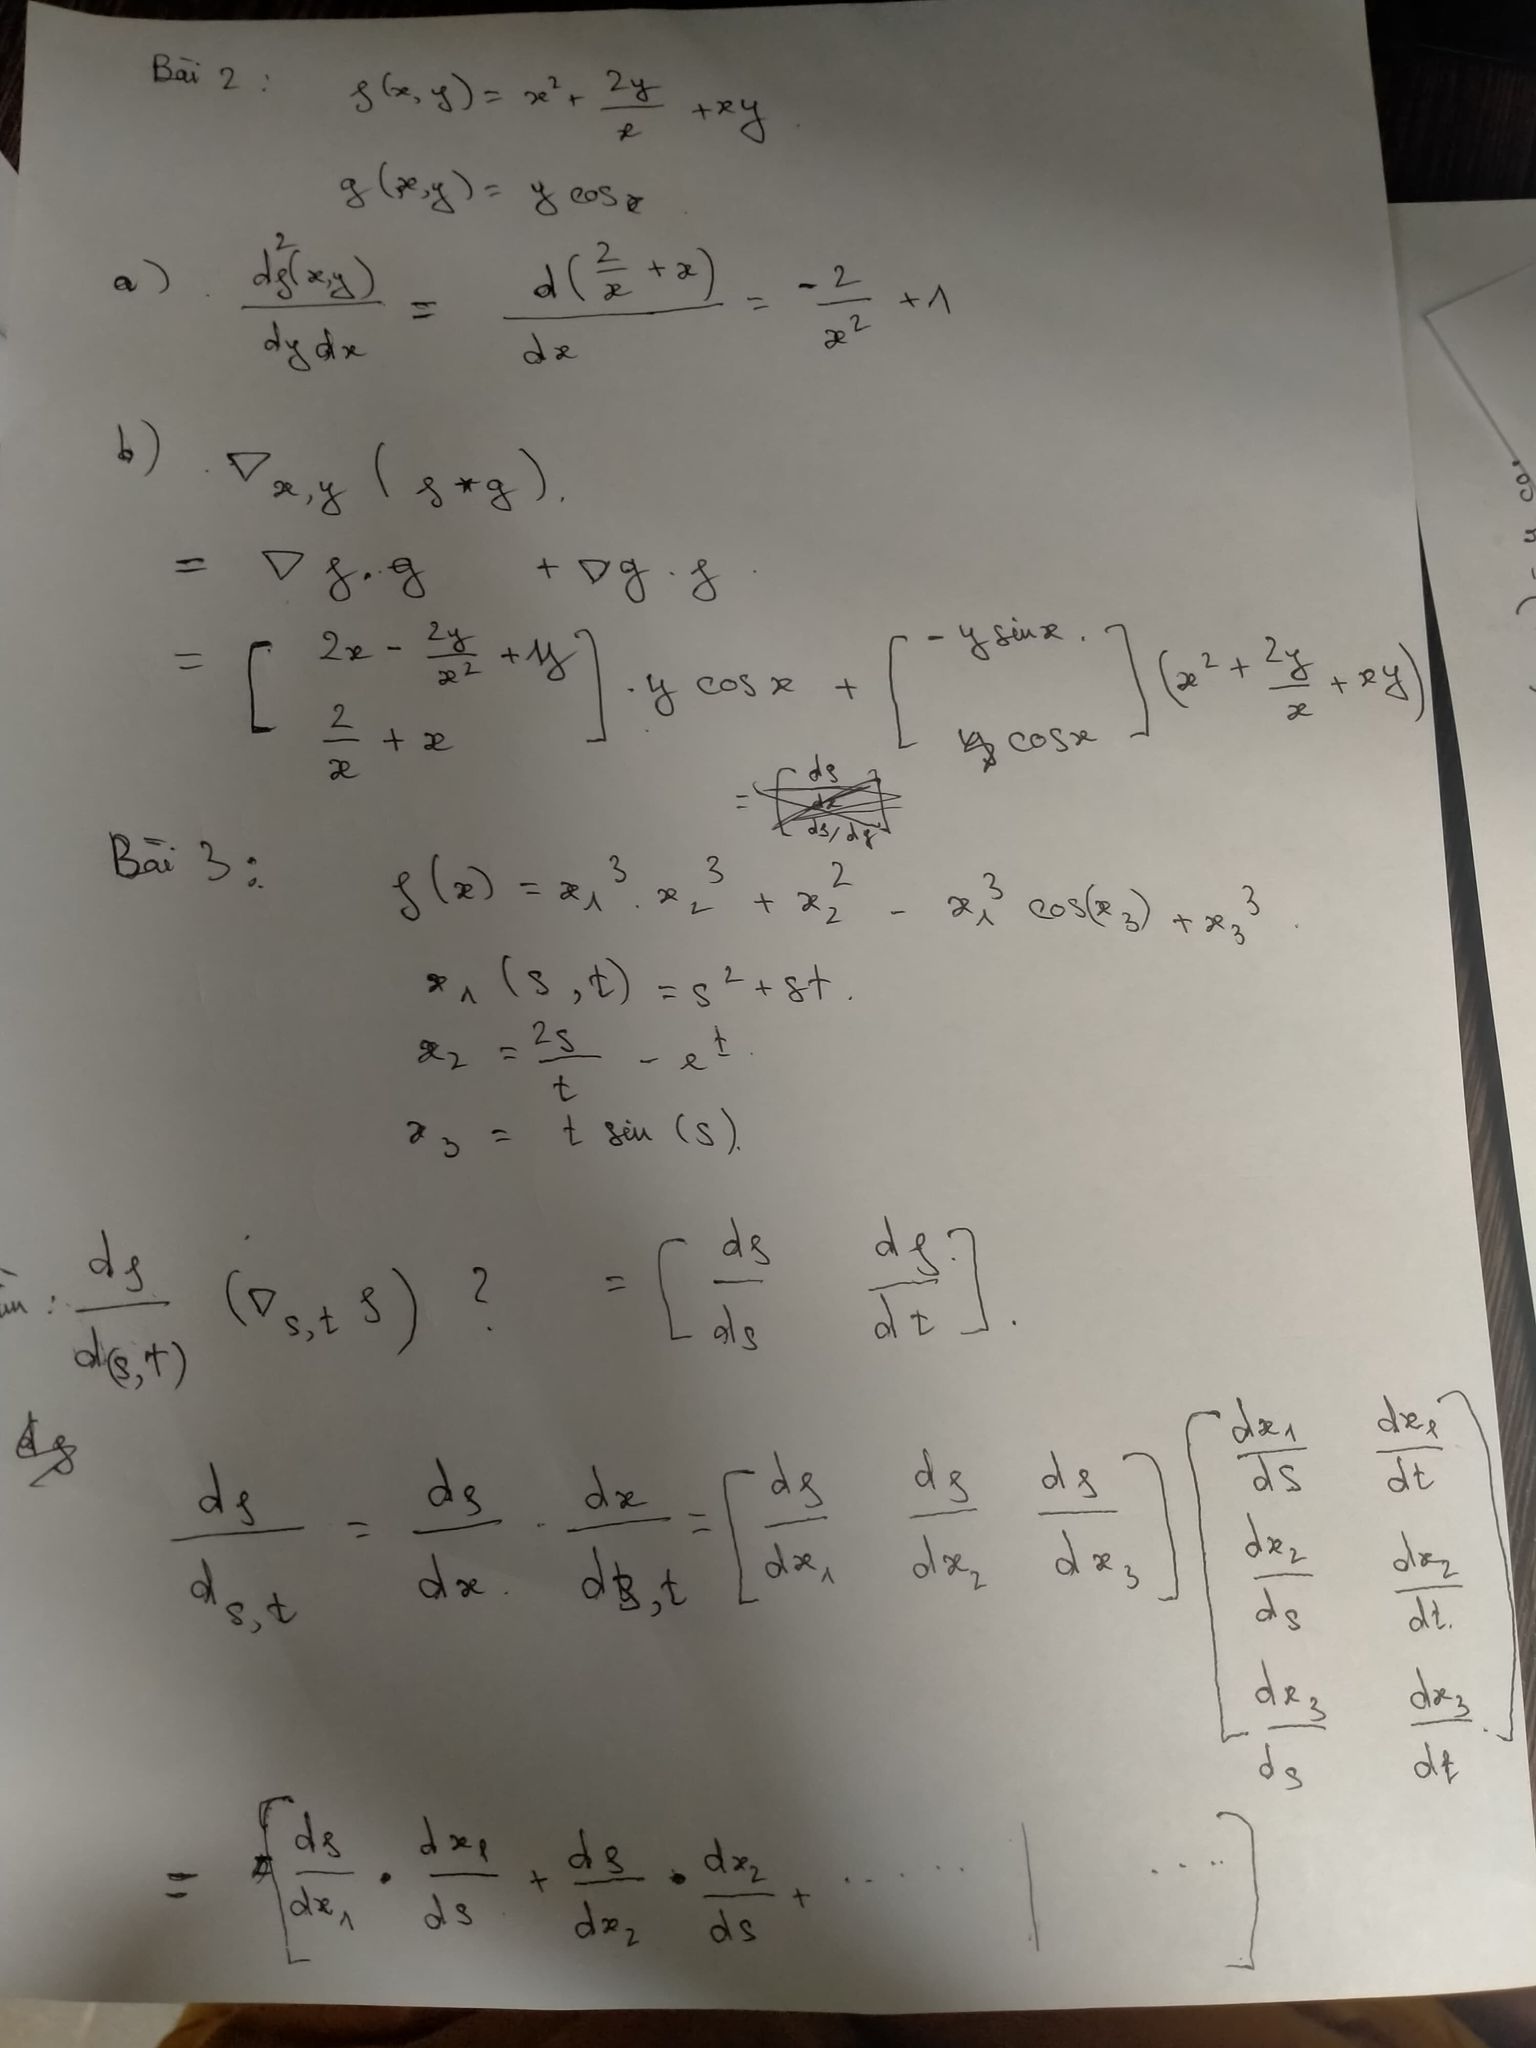 Bài 2 : f(x, y) = x² + 2y/x + xy
g(x,y) = y cosx
a) d²f(x,y)/dydx = d(2/x + x)/dx = -2/x² + 1
b) ∇x,y ( f * g ).
= ∇f . g + ∇g . f
= [2x - 2y/x² + y ; 2/x + x] . y cosx + [-y sinx ; cosx] (x² + 2y/x + xy)
Bài 3 : f(x) = x₁³ . x₂³ + x₂² - x₁³ cos(x₃) + x₃³
x₁ (s, t) = s² + st.
x₂ = 2s/t - eᵗ
x₃ = t sin (s).
: df/d(s,t) (∇s,t f) ? = [df/ds df/dt].
df/ds,t = df/dx . dx/ds,t = [df/dx₁ df/dx₂ df/dx₃] [dx₁/ds dx₁/dt ; dx₂/ds dx₂/dt ; dx₃/ds dx₃/dt]
= [df/dx₁ . dx₁/ds + df/dx₂ . dx₂/ds + ..... | ....]